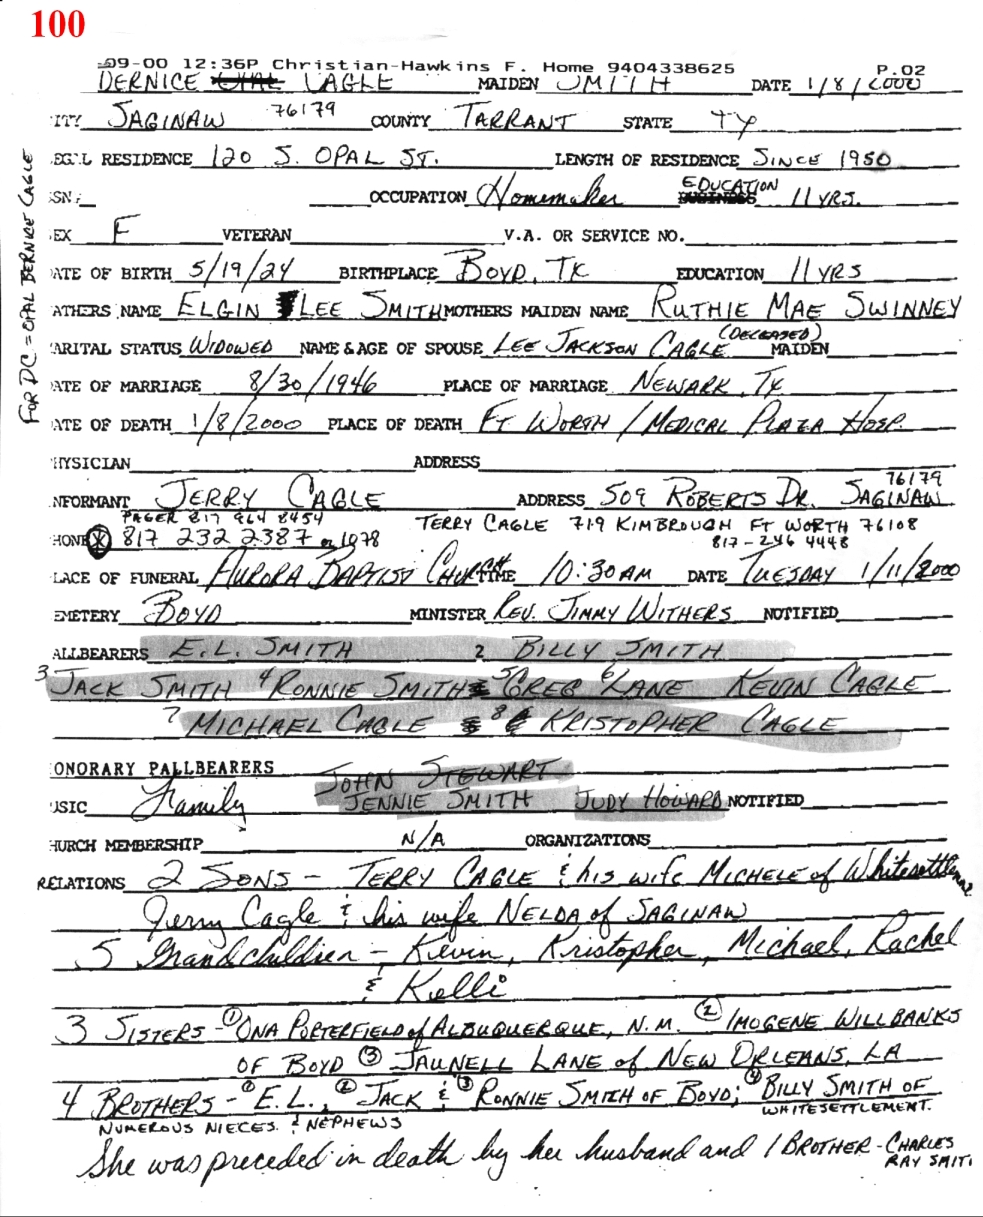 100
09-00 12:36P Christian-Hawkins F. Home 9404338625 P.02
BERNICE CAGLE MAIDEN SMITH DATE 1/8/2000
ITY SAGINAW 76179 COUNTY TARRANT STATE TX
EGAL RESIDENCE 120 S. OPAL ST. LENGTH OF RESIDENCE SINCE 1950
SN: OCCUPATION Homemaker EDUCATION BUSINESS 11 YRS.
EX F VETERAN V.A. OR SERVICE NO.
ATE OF BIRTH 5/19/24 BIRTHPLACE BOYD, TX EDUCATION 11 YRS
ATHERS NAME ELGIN LEE SMITH MOTHERS MAIDEN NAME RUTHIE MAE SWINNEY
ARITAL STATUS WIDOWED NAME & AGE OF SPOUSE LEE JACKSON CAGLE (DECEASED) MAIDEN
ATE OF MARRIAGE 8/30/1946 PLACE OF MARRIAGE NEWARK, TX
ATE OF DEATH 1/8/2000 PLACE OF DEATH FT WORTH / MEDICAL PLAZA HOSP.
HYSICIAN ADDRESS
NFORMANT JERRY CAGLE ADDRESS 509 ROBERTS DR. SAGINAW 76179
PAGER 817 964 8454 TERRY CAGLE 719 KIMBROUGH FT WORTH 76108
HONE 817 232 2387 or 1078 817-246 4448
LACE OF FUNERAL AURORA BAPTIST CHURCH TIME 10:30 AM DATE TUESDAY 1/11/2000
EMETERY BOYD MINISTER REV. JIMMY WITHERS NOTIFIED
ALLBEARERS E.L. SMITH 2 BILLY SMITH
3 JACK SMITH 4 RONNIE SMITH 5 GREG LANE 6 KEVIN CAGLE
7 MICHAEL CAGLE 8 KRISTOPHER CAGLE
ONORARY PALLBEARERS JOHN STEWART
USIC Family JENNIE SMITH JUDY HOWARD NOTIFIED
HURCH MEMBERSHIP N/A ORGANIZATIONS
RELATIONS 2 SONS - TERRY CAGLE & his wife MICHELE of Whitesettlement
Jerry Cagle & his wife NELDA of SAGINAW
5 Grandchildren - Kevin, Kristopher, Michael, Rachel
& Kelli
3 SISTERS - ① ONA PORTERFIELD of ALBUQUERQUE, N.M. ② IMOGENE WILLBANKS
OF BOYD ③ JAUNELL LANE of NEW ORLEANS, LA
4 BROTHERS - ① E.L., ② JACK & ③ RONNIE SMITH OF BOYD; ④ BILLY SMITH OF
WHITESETTLEMENT.
NUMEROUS NIECES & NEPHEWS
She was preceded in death by her husband and 1 BROTHER - CHARLES
RAY SMITH
FOR DC = OPAL BERNICE CAGLE